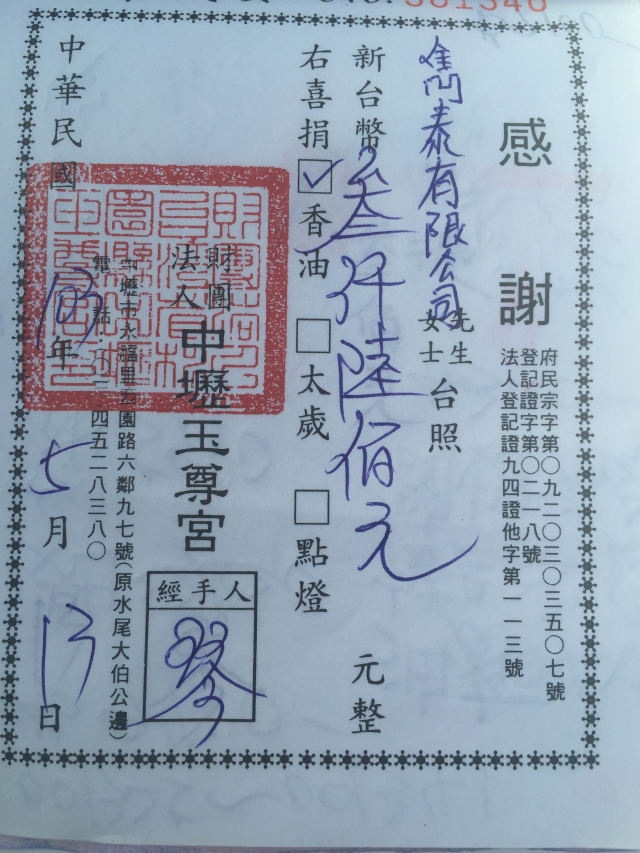 NO. 381346
感謝
府民宗字第〇九二〇三〇三五〇七號
登記證字第〇二一八號
法人登記證九四證他字第一一三號
泰有限公司
先生
女士
台照
新台幣叁仟陸佰元 元整
右喜捐☑香油 □太歲 □點燈
財團
法人
中壢玉尊宮
經手人
琴
園路六鄰九七號(原水尾大伯公邊)
電話:
四五二八三八〇
中華民國
年5月13日